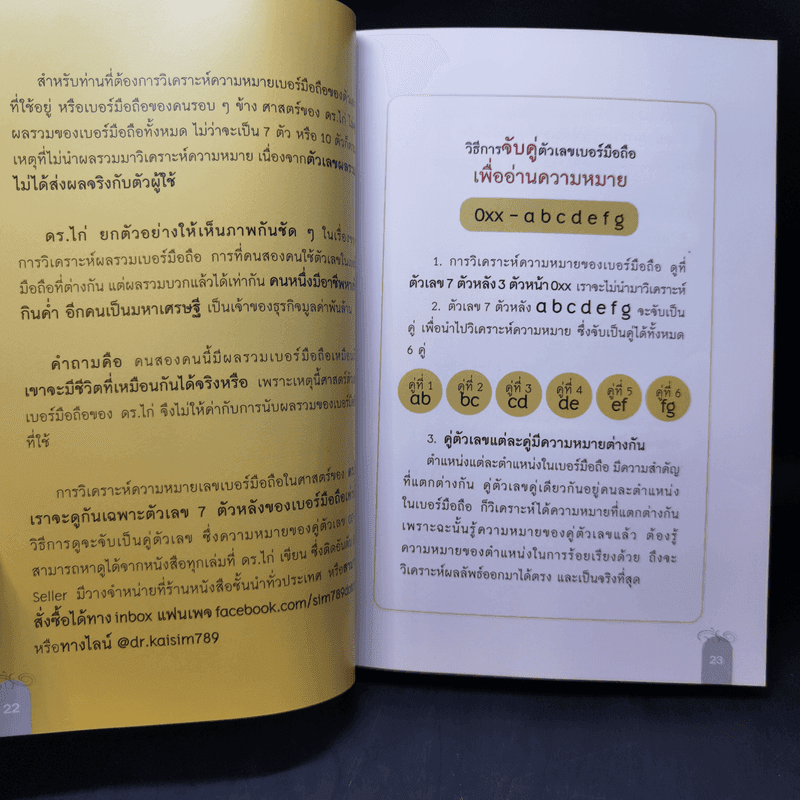 สำหรับท่านที่ต้องการวิเคราะห์ความหมายเบอร์มือถือของ
ที่ใช้อยู่ หรือเบอร์มือถือของคนรอบ ๆ ข้าง ศาสตร์ของ ดร.ไก่
ผลรวมของเบอร์มือถือทั้งหมด ไม่ว่าจะเป็น 7 ตัว หรือ 10 ตัว
เหตุที่ไม่นำผลรวมมาวิเคราะห์ความหมาย เนื่องจากตัวเลขผลรวม
ไม่ได้ส่งผลจริงกับตัวผู้ใช้
ดร.ไก่ ยกตัวอย่างให้เห็นภาพกันชัด ๆ ในเรื่อง
การวิเคราะห์ผลรวมเบอร์มือถือ การที่คนสองคนใช้ตัวเลขใน
มือถือที่ต่างกัน แต่ผลรวมบวกแล้วได้เท่ากัน คนหนึ่งมีอาชีพ
กินค่ำ อีกคนเป็นมหาเศรษฐี เป็นเจ้าของธุรกิจมูลค่าพันล้าน
คำถามคือ คนสองคนนี้มีผลรวมเบอร์มือถือเหมือน
เขาจะมีชีวิตที่เหมือนกันได้จริงหรือ เพราะเหตุนี้ศาสตร์
เบอร์มือถือของ ดร.ไก่ จึงไม่ให้ค่ากับการนับผลรวมของเบอร์
ที่ใช้
การวิเคราะห์ความหมายเลขเบอร์มือถือในศาสตร์ของ
เราจะดูกันเฉพาะตัวเลข 7 ตัวหลังของเบอร์มือถือ
วิธีการดูจะจับเป็นคู่ตัวเลข ซึ่งความหมายของคู่ตัวเลข
สามารถหาดูได้จากหนังสือทุกเล่มที่ ดร.ไก่ เขียน ซึ่งติดอันดับ
Seller มีวางจำหน่ายที่ร้านหนังสือชั้นนำทั่วประเทศ หรือ
สั่งซื้อได้ทาง inbox แฟนเพจ facebook.com/sim789
หรือทางไลน์ @dr.kaisim789
22
วิธีการจับคู่ตัวเลขเบอร์มือถือ
เพื่ออ่านความหมาย
0xx - a b c d e f g
1. การวิเคราะห์ความหมายของเบอร์มือถือ ดูที่
ตัวเลข 7 ตัวหลัง 3 ตัวหน้า 0xx เราจะไม่นำมาวิเคราะห์
2. ตัวเลข 7 ตัวหลัง a b c d e f g จะจับเป็น
คู่ เพื่อนำไปวิเคราะห์ความหมาย ซึ่งจับเป็นคู่ได้ทั้งหมด
6 คู่
คู่ที่ 1 คู่ที่ 2 คู่ที่ 3 คู่ที่ 4 คู่ที่ 5 คู่ที่ 6
ab bc cd de ef fg
3. คู่ตัวเลขแต่ละคู่มีความหมายต่างกัน
ตำแหน่งแต่ละตำแหน่งในเบอร์มือถือ มีความสำคัญ
ที่แตกต่างกัน คู่ตัวเลขคู่เดียวกันอยู่คนละตำแหน่ง
ในเบอร์มือถือ ก็วิเคราะห์ได้ความหมายที่แตกต่างกัน
เพราะฉะนั้นรู้ความหมายของคู่ตัวเลขแล้ว ต้องรู้
ความหมายของตำแหน่งในการร้อยเรียงด้วย ถึงจะ
วิเคราะห์ผลลัพธ์ออกมาได้ตรง และเป็นจริงที่สุด
23